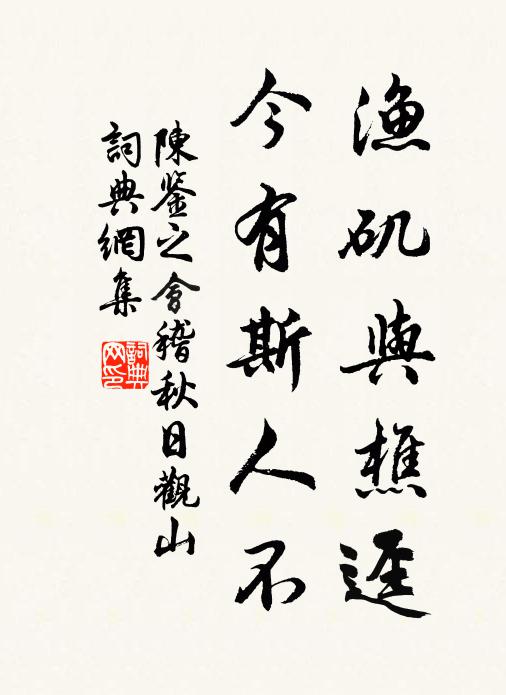 漁矶與樵逕
今有斯人不
陳鉴之會稽秋日觀山
詞典網集
詞典
网印